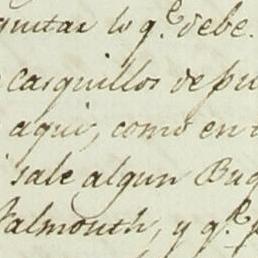 quitar lo q.e debe.
casquillos de pu
aqui, como en
sale algun Buq
Falmouth, y q.e